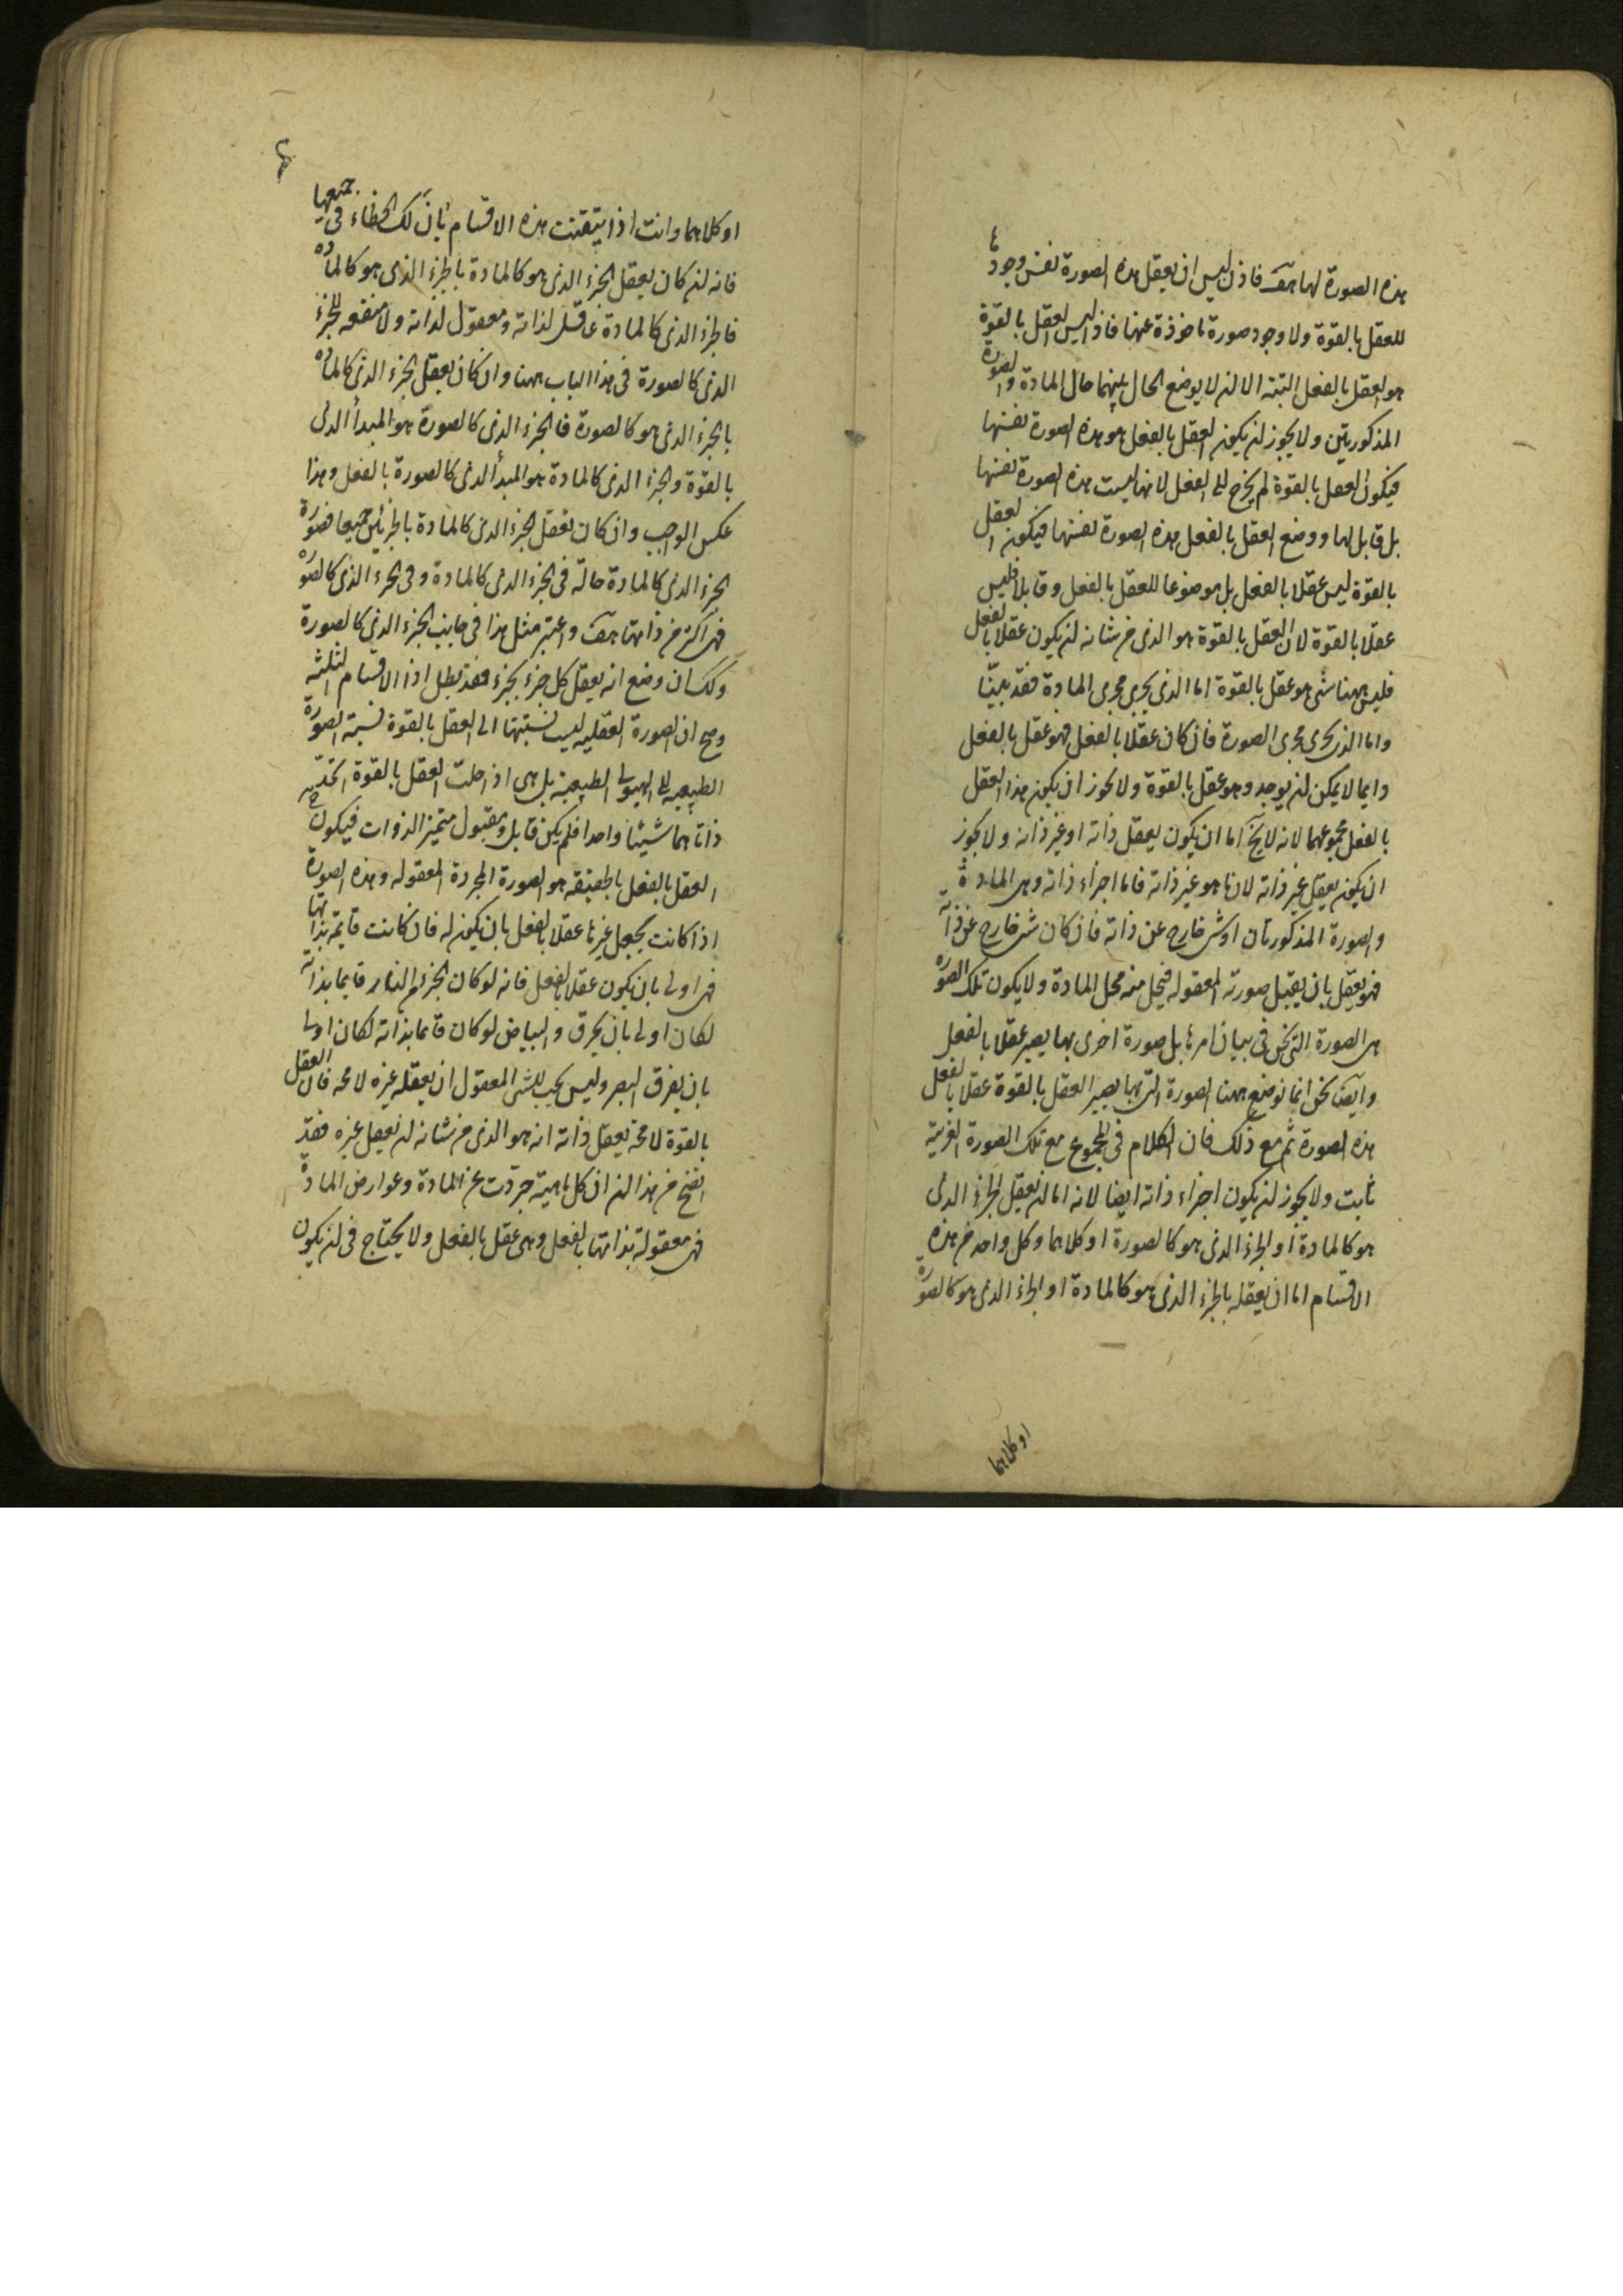 هذه الصورة لها هف فاذن ليس ان يعقل هذه الصورة نفس وجودها
للعقل بالقوة ولا وجود صورة ماخوذة عنها فاذن ليس العقل بالقوة
هو العقل بالفعل البتة الا ان لا يوضع الحال بينهما حال المادة والصورة
المذكورتين ولا يجوز ان يكون العقل بالفعل هو هذه الصورة نفسها
فيكون العقل بالقوة لم يخرج الى الفعل لانها ليست هذه الصورة نفسها
بل قابل لها ووضع العقل بالفعل هذه الصورة نفسها فيكون العقل
بالقوة ليس عقلا بالفعل بل موضوعا للعقل بالفعل وقابلا فليس
عقلا بالقوة لان العقل بالقوة هو الذى من شانه ان يكون عقلا بالفعل
فليس ههنا شى هو عقل بالقوة اما الذى يجرى مجرى المادة فقد بينا
واما الذى يجرى مجرى الصورة فان كان عقلا بالفعل فهو عقل بالفعل
دايما لا يمكن ان يوجد وهو عقل بالقوة ولا يجوز ان يكون هذا العقل
بالفعل مجموعهما لانه لا يخ اما ان يكون يعقل ذاته او غير ذاته ولا يجوز
ان يكون يعقل غير ذاته لان ما هو غير ذاته فاما اجزاء ذاته وهى المادة
والصورة المذكورتان او شى خارج عن ذاته فان كان شى خارج عن ذاته
فهو يعقل بان يقبل صورته المعقوله فيحل منه محل المادة ولا يكون تلك الصورة
هى الصورة التى نحن فى بيان امرها بل صورة اخرى بها يصير عقلا بالفعل
وايضا نحن انما نوضع ههنا الصورة التى بها يصير العقل بالقوة عقلا بالفعل
هذه الصورة ثم مع ذلك فان الكلام فى المجموع مع تلك الصورة الغريبة
ثابت ولا يجوز ان يكون اجزاء ذاته ايضا لانه اما ان يعقل الجزء الذى
هو كالمادة او الجزء الذى هو كالصورة او كلاهما وكل واحد من هذه
الاقسام اما ان يعقله بالجزء الذى هو كالمادة او الجزء الذى هو كالصورة
او كلاهما
او كلاهما وانت اذا تيقنت هذه الاقسام بان لك الخطاء فى جميعها
فانه ان كان يعقل الجزء الذى هو كالمادة بالجزء الذى هو كالمادة
فالجزء الذى كالمادة عاقل لذاته ومعقول لذاته ولا منفعه للجزء
الذى كالصورة فى هذا الباب ههنا وان كان يعقل الجزء الذى كالمادة
بالجزء الذى هو كالصورة فالجزء الذى كالصورة هو المبدأ الذى
بالقوة والجزء الذى كالمادة هو المبدأ الذى كالصورة بالفعل وهذا
عكس الواجب وان كان يعقل الجزء الذى كالمادة بالجزئين جميعا فصورة
الجزء الذى كالمادة حالة فى الجزء الذى كالمادة وفى الجزء الذى كالصورة
فهى اكثر من ذاتها هف واعتبر مثل هذا فى جانب الجزء الذى كالصورة
وكك ان وضع انه يعقل كل جزء بجزء فقد بطل اذا الاقسام الثلثه
وصح ان الصورة العقليه ليست نسبتها الى العقل بالقوة نسبة الصورة
الطبيعيه الى الهيولى الطبيعية بل هى اذا حلت العقل بالقوة اتحد
ذاتاهما شيئا واحدا فلم يكن قابل ومقبول متميز الذوات فيكون ح
العقل بالفعل بالحقيقه هو الصورة المجردة المعقوله وهذه الصورة
اذا كانت يجعل غيرها عقلا بالفعل بان يكون له فان كانت قايمة بذاتها
فهى اولى بان يكون عقلا بالفعل فانه لو كان الجزء من النار قايما بذاته
لكان اولى بان يحرق والبياض لو كان قائما بذاته لكان اولى
بان يفرق البصر وليس يجب للشى المعقول ان يعقله غيره لا محه فان العقل
بالقوة لا محة يعقل ذاته انه هو الذى من شانه ان يعقل غيره فقد
اتضح من هذا ان كل ماهية جردت عن المادة وعوارض المادة
فهى معقولة بذاتها بالفعل وهى عقل بالفعل ولا يحتاج فى ان يكون